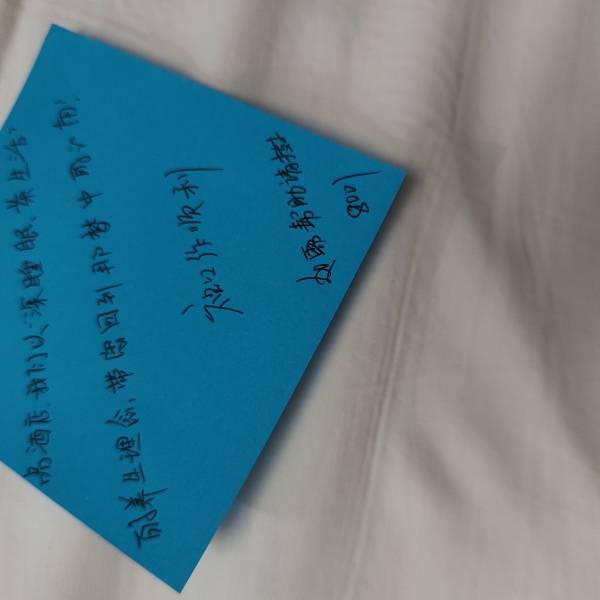 尚酒店，我们以“深睡眠、养生活”
的养生理念，带您回到那梦中的心宿，
祝您工作顺利
如需帮助请拨
8001